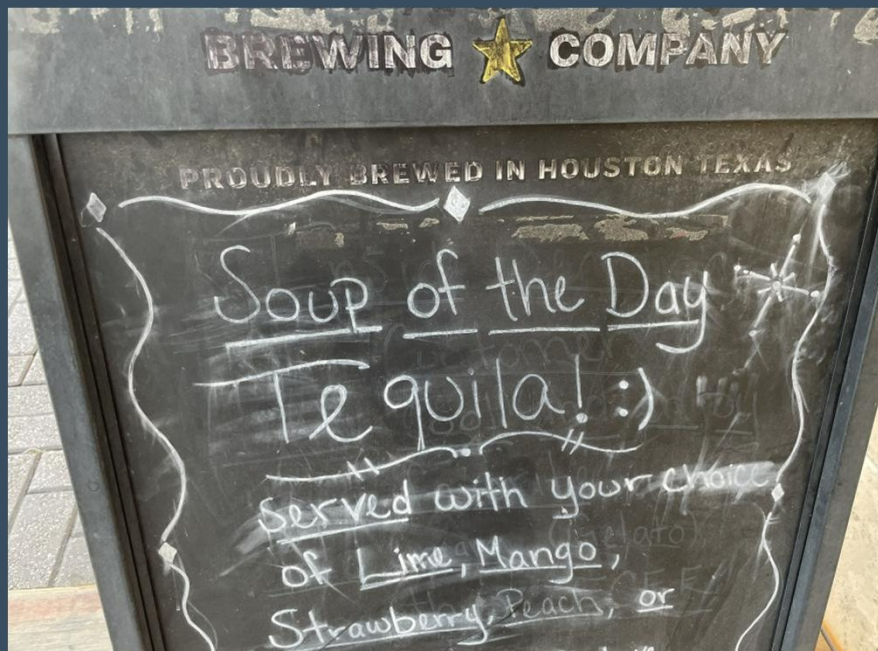 BREWING COMPANY
PROUDLY BREWED IN HOUSTON TEXAS
Soup of the Day
Tequila! :)
Served with your choice
of Lime, Mango,
Strawberry, Peach, or